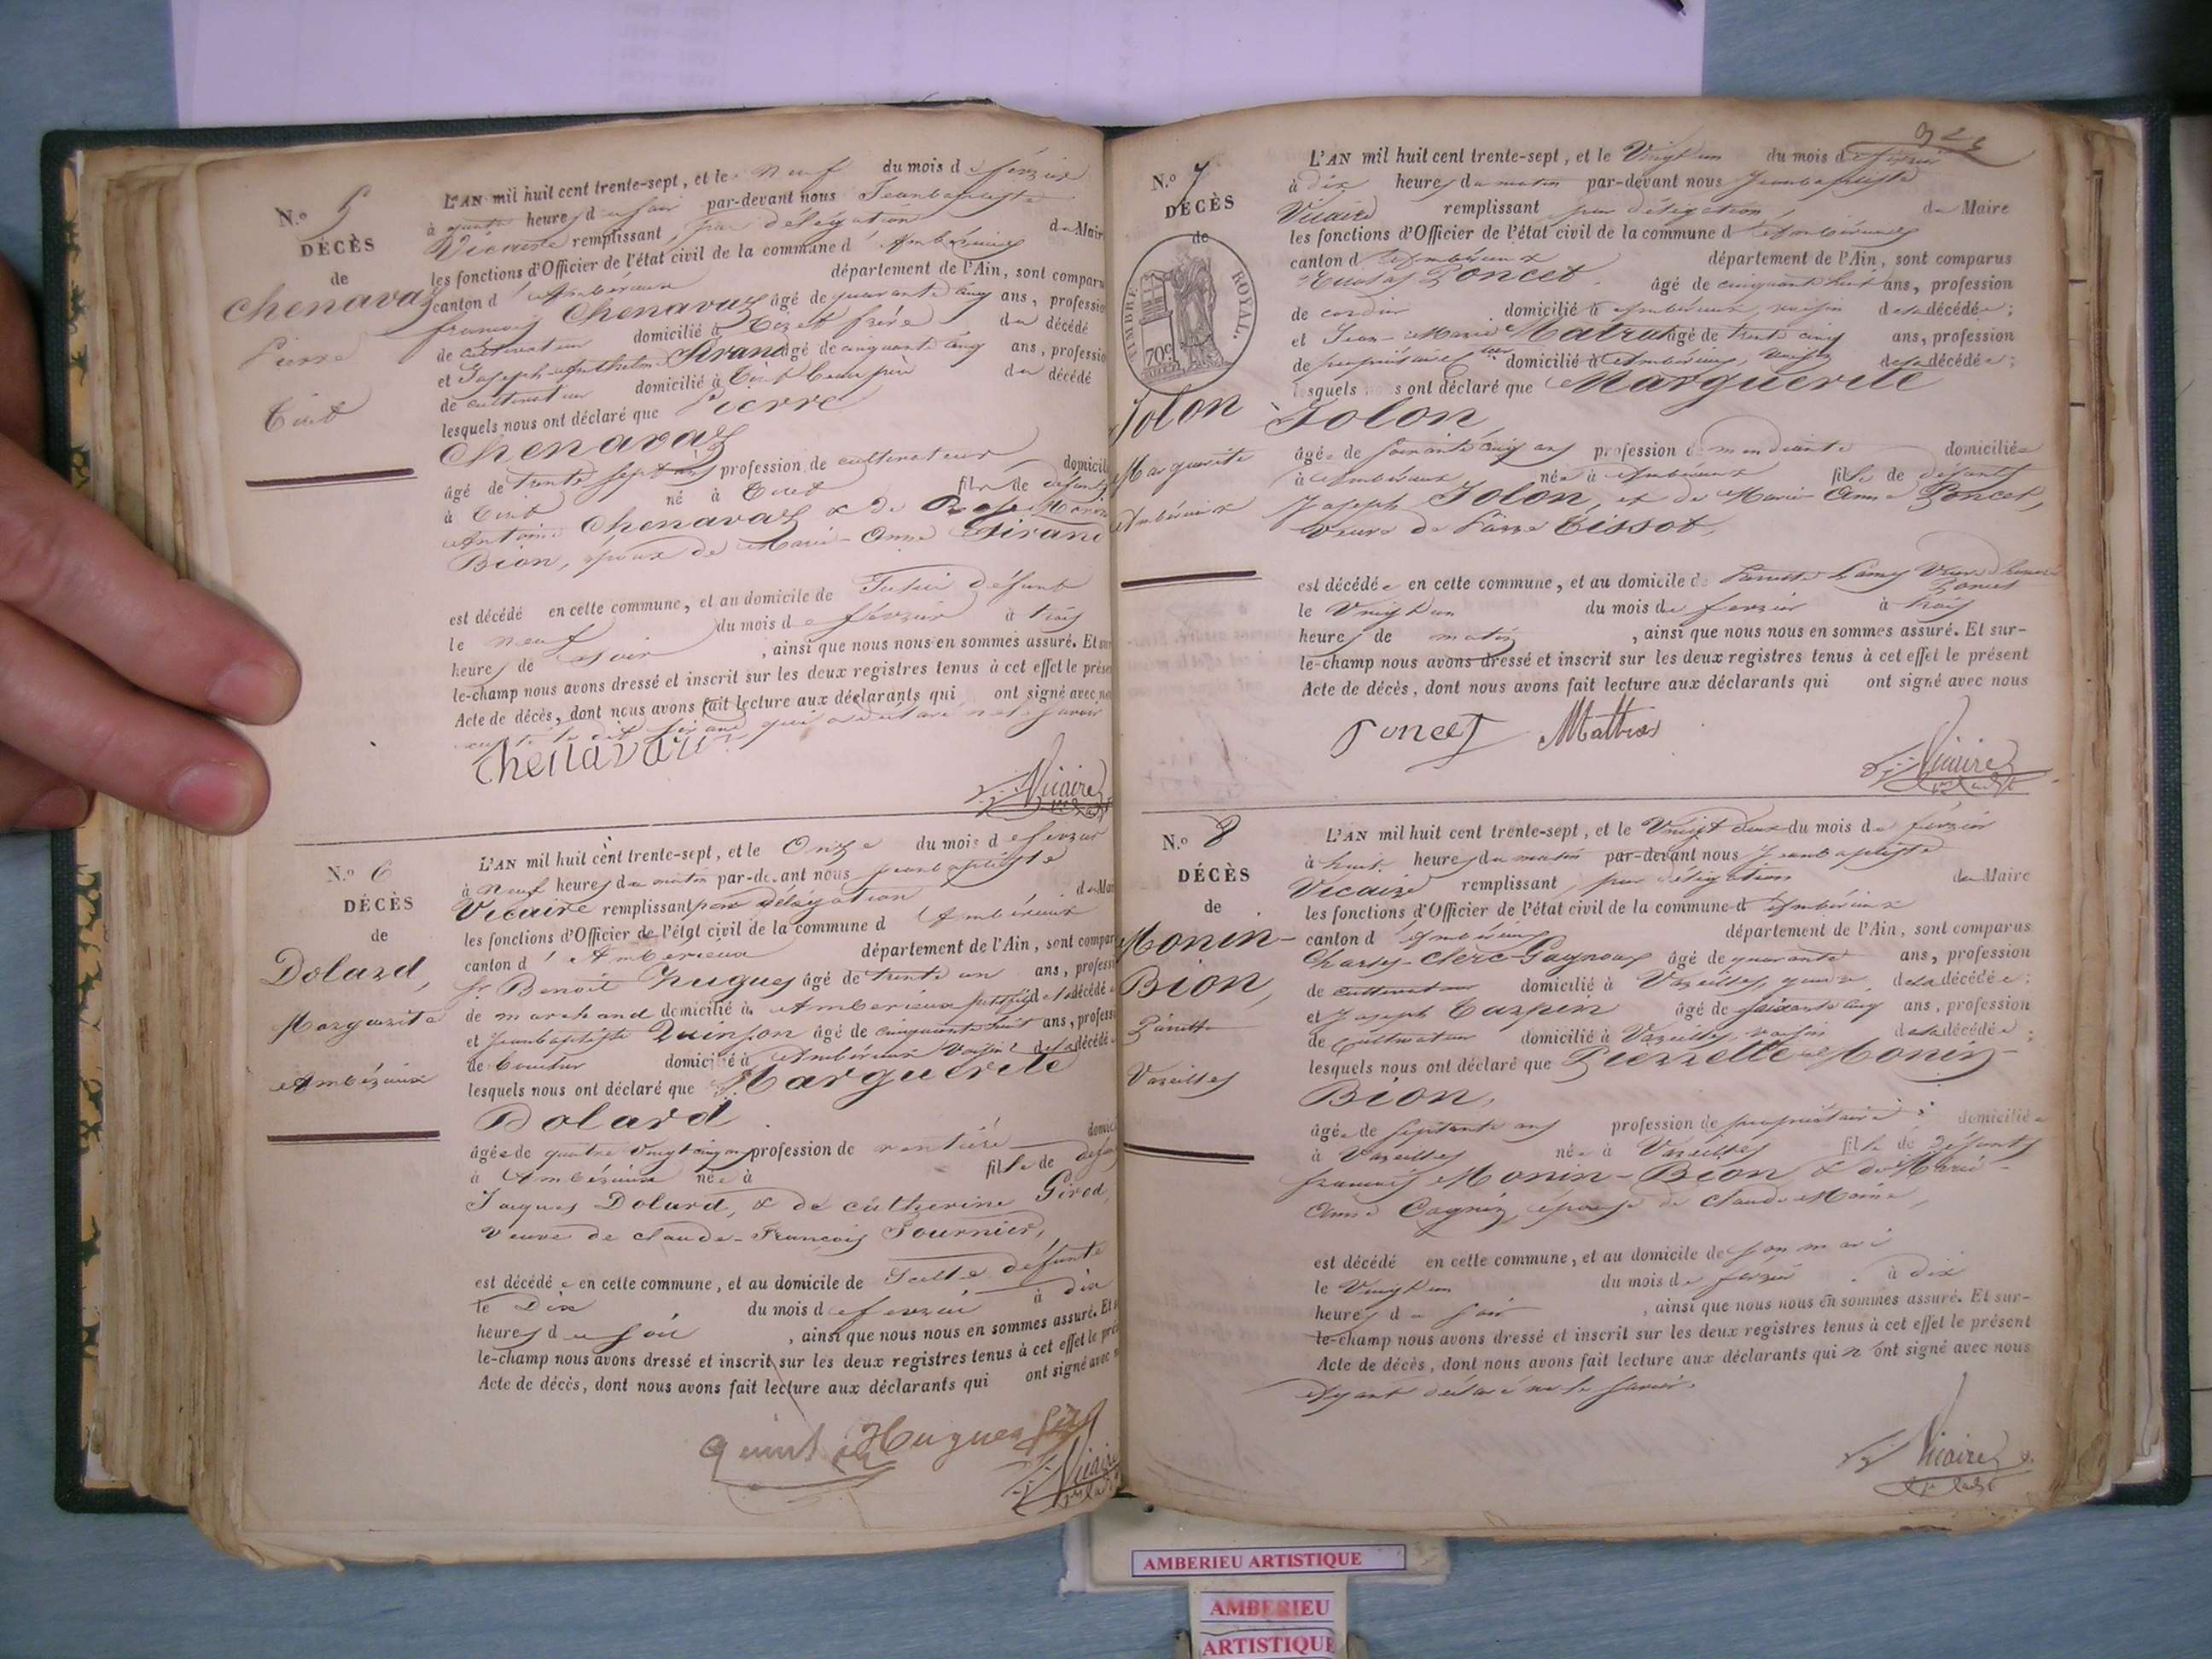 N.o 5
DÉCÈS
de
Chenavaz
Pierre
Tiret
L'AN mil huit cent trente-sept, et le neuf du mois de février
à quatre heures du soir par-devant nous Jean baptiste
Vicaire remplissant par délégation du Mair
les fonctions d'Officier de l'état civil de la commune d'Ambérieux
canton d'Ambérieux département de l'Ain, sont comparu
françois Chenavaz âgé de quarante cinq ans, professio
de cultivateur domicilié à Tiret frère du décédé
et Joseph-Anthelme Sirand âgé de cinquante cinq ans, professio
de cultivateur domicilié à Tiret beau père du décédé
lesquels nous ont déclaré que Pierre
Chenavaz
âgé de trente sept ans profession de cultivateur domicil
à Tiret né à Tiret fils de défunts
Antoine Chenavaz & de
Bion, époux de Marie-Anne Sirand
est décédé en cette commune, et au domicile de défunt
le neuf du mois de février à trois
heures de soir, ainsi que nous nous en sommes assuré. Et su
le-champ nous avons dressé et inscrit sur les deux registres tenus à cet effet le prése
Acte de décès, dont nous avons fait lecture aux déclarants qui ont signé avec no
le dit Sirand qui a déclaré ne le savoir
Chenavaz
Vicaire
N.o 6
DÉCÈS
de
Dolard,
Marguerite
Ambérieux
L'AN mil huit cent trente-sept, et le Onze du mois de février
à neuf heures du matin par-devant nous jean baptiste
Vicaire remplissant par délégation du Mai
les fonctions d'Officier de l'état civil de la commune d'Ambérieux
canton d'Ambérieux département de l'Ain, sont compar
Sr. Benoit Hugues âgé de trente un ans, profess
de marchand domicilié à Ambérieux petit fils de la décédé
et Jean baptiste Quinson âgé de cinquante huit ans, profess
de domicilié à Ambérieux voisin de la décédé
lesquels nous ont déclaré que Marguerite
Dolard
âgée de quatre vingt cinq ans profession de rentière domic
à Ambérieux née à fille de
Jaques Dolard, & de catherine Girod,
veuve de claude-François Tournier,
est décédée en cette commune, et au domicile de défunte
le Dix du mois de février à dix
heures du soir, ainsi que nous nous en sommes assuré. Et s
le-champ nous avons dressé et inscrit sur les deux registres tenus à cet effet le pré
Acte de décès, dont nous avons fait lecture aux déclarants qui ont signé avec n
Hugues fils
Vicaire
N.o 7
DÉCÈS
de
TIMBRE ROYAL.
70c
Jolon
Marguerite
Ambérieux
L'AN mil huit cent trente-sept, et le Vingt un du mois de février
à dix heures du matin par-devant nous Jean baptiste
Vicaire remplissant par délégation du Maire
les fonctions d'Officier de l'état civil de la commune d'Ambérieux
canton d'Ambérieux département de l'Ain, sont comparus
Nicolas Poncet âgé de cinquante huit ans, profession
de cordier domicilié à Ambérieux, voisin de la décédée;
et Jean-Marie Matras âgé de trente cinq ans, profession
de propriétaire domicilié à Ambérieux, voisin de la décédée;
lesquels nous ont déclaré que Marguerite
Jolon,
âgée de soixante cinq ans profession de mendiante domiciliée
à Ambérieux née à Ambérieux fille de défunts
Joseph Jolon, et de Marie Anne Poncet,
veuve de Pierre Tissot,
est décédée en cette commune, et au domicile de Lamy Veuve
Poncet
le Vingt un du mois de février à trois
heures de matin, ainsi que nous nous en sommes assuré. Et sur-
le-champ nous avons dressé et inscrit sur les deux registres tenus à cet effet le présent
Acte de décès, dont nous avons fait lecture aux déclarants qui ont signé avec nous
Poncet Mattras
Vicaire
N.o 8
DÉCÈS
de
Monin-
Bion,
Pierrette
Vareilles
L'AN mil huit cent trente-sept, et le Vingt deux du mois de février
à huit heures du matin par-devant nous Jean baptiste
Vicaire remplissant par délégation du Maire
les fonctions d'Officier de l'état civil de la commune d'Ambérieux
canton d'Ambérieux département de l'Ain, sont comparus
Charles-Clerc-Gagnoux âgé de quarante ans, profession
de cultivateur domicilié à Vareilles, gendre, de la décédée;
et Joseph Carpin âgé de soixante cinq ans, profession
de Cultivateur domicilié à Vareilles, voisin de la décédée;
lesquels nous ont déclaré que Pierrette Monin-
Bion,
âgée de septante ans profession de propriétaire domiciliée
à Vareilles née à Vareilles fille de défunts
françois Monin-Bion & de Marie-
Anne Cagnin, épouse de claude Moine,
est décédé en cette commune, et au domicile de son mari
le Vingt un du mois de février à dix
heures du soir, ainsi que nous nous en sommes assuré. Et sur-
le-champ nous avons dressé et inscrit sur les deux registres tenus à cet effet le présent
Acte de décès, dont nous avons fait lecture aux déclarants qui n'ont signé avec nous
Ayant déclaré ne le savoir.
Vicaire
AMBERIEU ARTISTIQUE
AMBERIEU
ARTISTIQUE